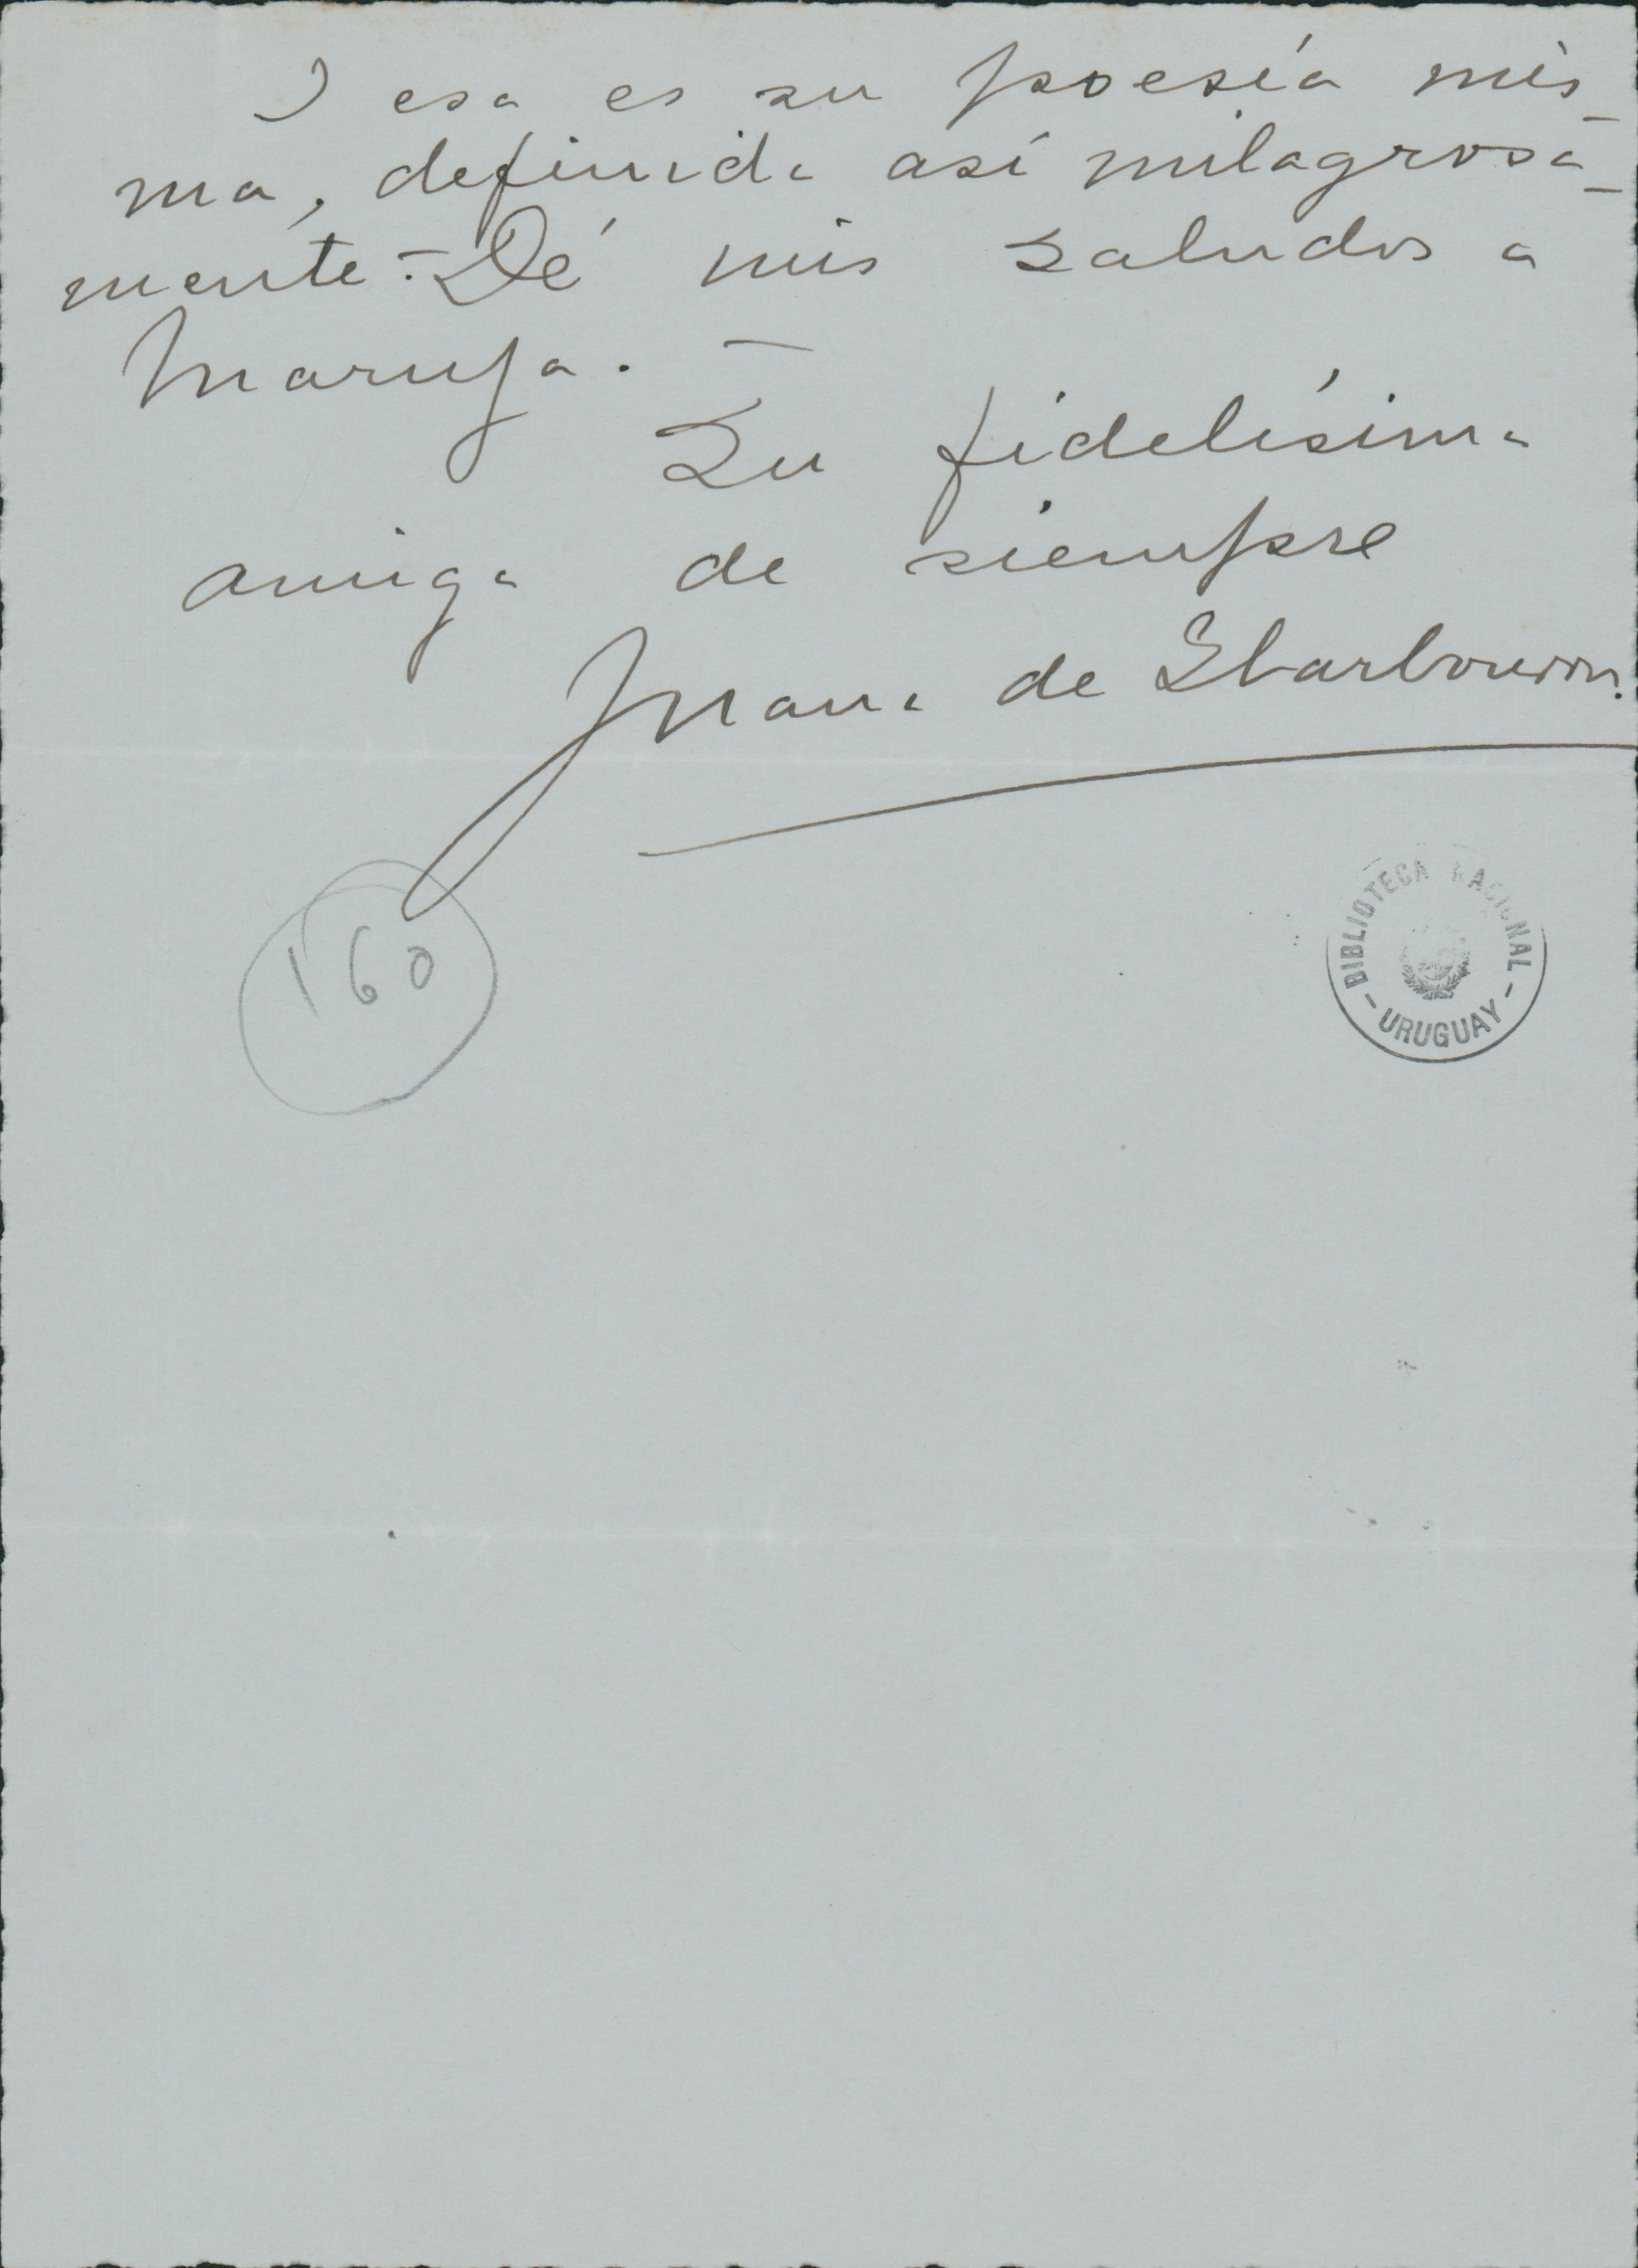 I esa es su poesía mis-
ma, definida así milagrosa-
mente.- Dé mis saludos a
Maruja. -
Su fidelísima
amiga de siempre
Juana de Ibarbourou.
160
BIBLIOTECA NACIONAL
- URUGUAY -